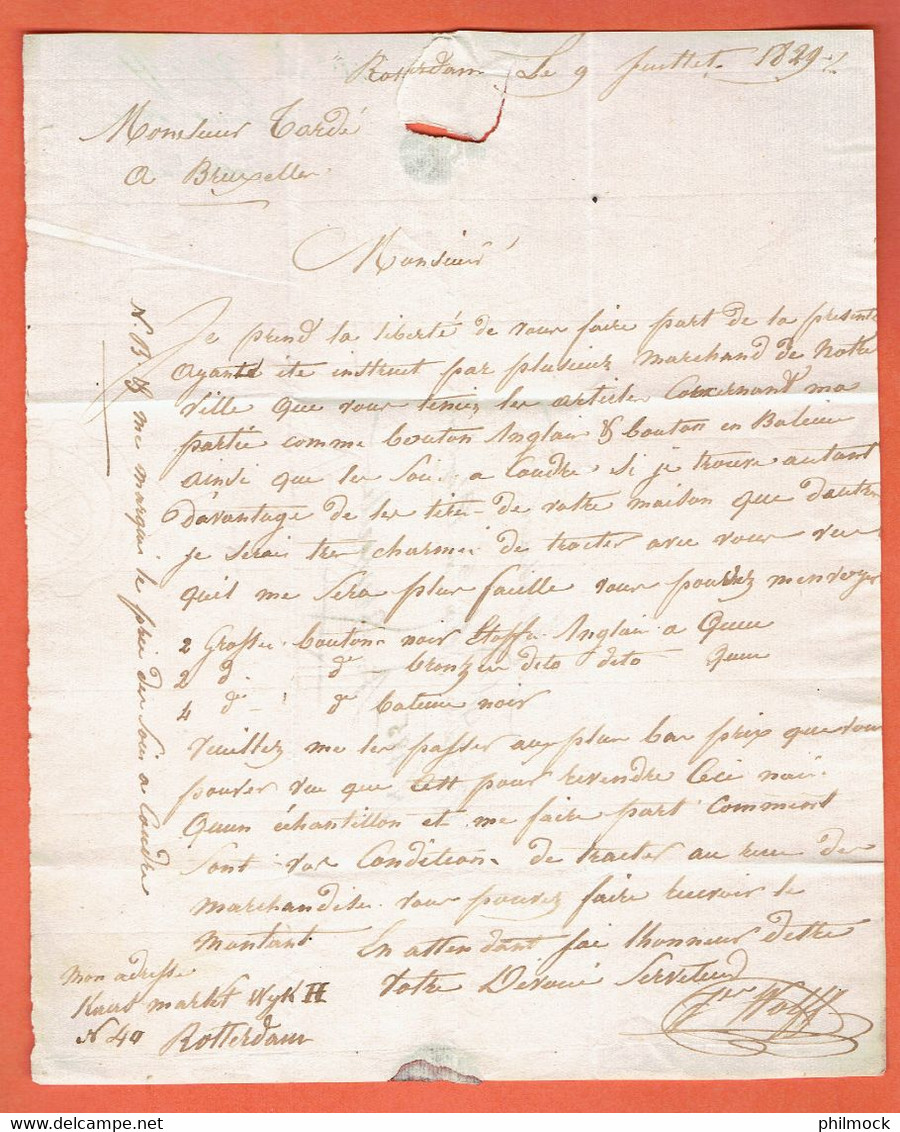 Rotterdam Le 9 Juillet 1829
Monsieur Tardé
a Bruxelles
Monsieur
Je prend la liberté de vous faire part de la présente
ayant été instruit par plusieur marchand de Notre
Ville que vous teniez les article Concernant ma
partie comme bouton Anglais & bouton en Baleine
ainsi que les Soie a Coudre si je trouve autant
d'avantage de les tiré de votre maison que d'autre
je serai tres charmé de traiter avec vous vu
qu'il me sera plus facille vous pouvez menvoyer
2 Grosse bouton noir Stoffe Anglais a Queue
2 d° d° bronzer dito dito Queue
4 d° d° baleine noir
Veuillez me les passer aux plus bas prix que vous
pouvez vue que cest pour revendre Ceci nai
Quun échantillon et me faire part Comment
Sont vos Condition de traiter au recu des
Marchandise vous pouvez faire recevoir le
Montant
En attendant jai lhonneur detre
Votre Dévoué Serviteur
Wolff
Mon adresse
markt Wyk H
N 40 Rotterdam
N.B. & me marquer le prix des Soie a Coudre
philmock.com